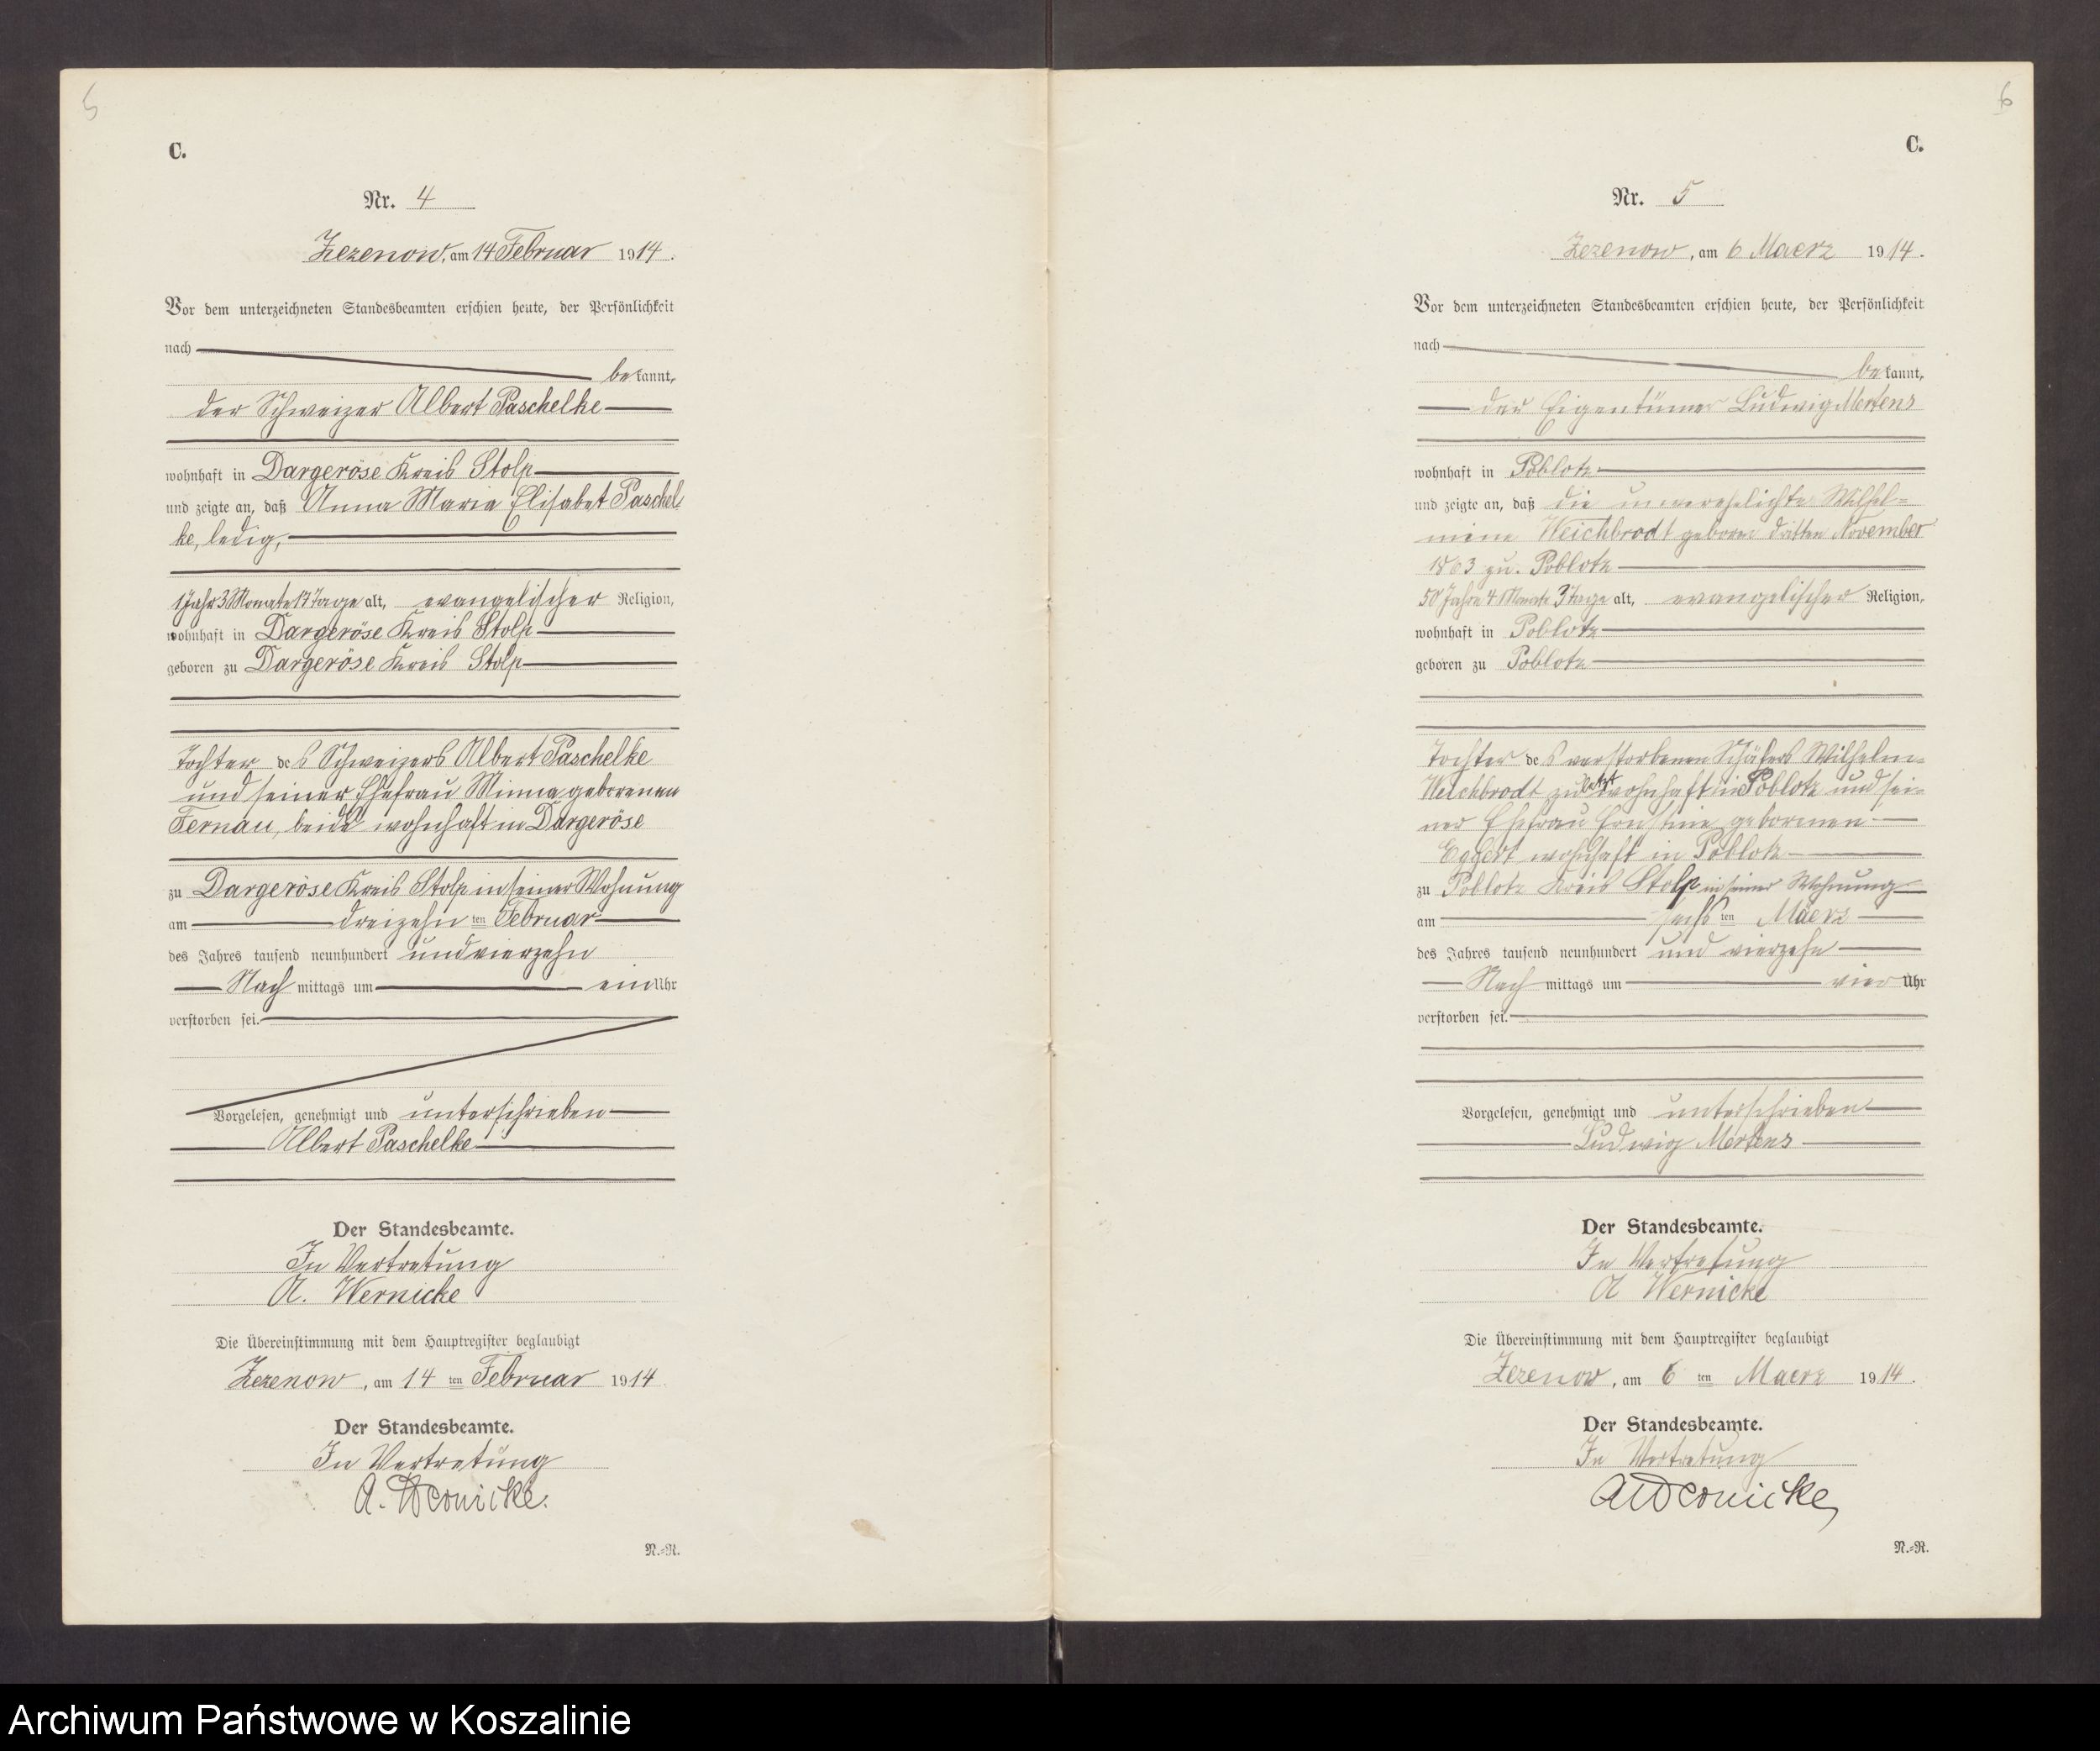 5
C.
Nr. 4
Zezenow, am 14 Februar 1914.
Vor dem unterzeichneten Standesbeamten erschien heute, der Persönlichkeit
nach
bekannt,
der Schweizer Albert Paschelke
wohnhaft in Dargeröse Kreis Stolp
und zeigte an, daß Anna Maria Elisabet Paschel
ke, ledig,
1 Jahr 3 Monate 17 Tage alt, evangelischer Religion,
wohnhaft in Dargeröse Kreis Stolp
geboren zu Dargeröse Kreis Stolp
Tochter des Schweizers Albert Paschelke
und seiner Ehefrau Minna geborenen
Fernau, beide wohnhaft in Dargeröse
zu Dargeröse Kreis Stolp in seiner Wohnung
am dreizehnten Februar
des Jahres tausend neunhundert und vierzehn
Nachmittags um ein Uhr
verstorben sei.
Vorgelesen, genehmigt und unterschrieben
Albert Paschelke
Der Standesbeamte.
In Vertretung
A. Wernicke
Die Übereinstimmung mit dem Hauptregister beglaubigt
Zezenow, am 14 ten Februar 1914
Der Standesbeamte.
In Vertretung
A. Wernicke.
N.=R.
6
C.
Nr. 5
Zezenow, am 6 Maerz 1914.
Vor dem unterzeichneten Standesbeamten erschien heute, der Persönlichkeit
nach
bekannt,
der Eigentümer Ludwig Mertens
wohnhaft in Poblotz
und zeigte an, daß die unverehelichte Wilhel=
mine Weichbrodt geboren dritten November
1863 zu. Poblotz
50 Jahre 4 Monate 3 Tage alt, evangelischer Religion,
wohnhaft in Poblotz
geboren zu Poblotz
Tochter des verstorbenen Schäfers Wilhelm
Weichbrodt zuletzt wohnhaft in Poblotz und sei=
ner Ehefrau Ernstine geborenen
Eggert wohnhaft in Poblotz
zu Poblotz Kreis Stolp in seiner Wohnung
am sechsten Maerz
des Jahres tausend neunhundert und vierzehn
Nachmittags um vier Uhr
verstorben sei.
Vorgelesen, genehmigt und unterschrieben
Ludwig Mertens
Der Standesbeamte.
In Vertretung
A Wernicke
Die Übereinstimmung mit dem Hauptregister beglaubigt
Zezenow, am 6 ten Maerz 1914.
Der Standesbeamte.
In Vertretung
A Wernicke
N.=R.
Archiwum Państwowe w Koszalinie